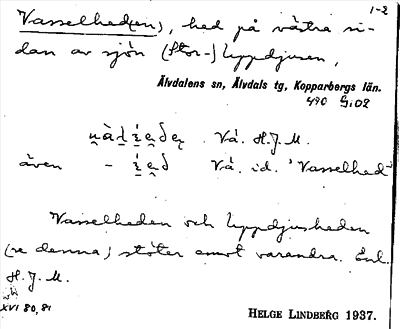 1-2
Vasselhed(en), hed på västra si-
dan av sjön (Stor-) Uppdjusen,
Älvdalens sn, Älvdals tg, Kopparbergs län.
490 G:02
Vå. H.J.M.
även Vå. id. "Vasselhed"
Vasselheden och Uppdjusheden
(se denna) stöter emot varandra. Enl.
H.J.M.
XVI 80,81
HELGE LINDBERG 1937.